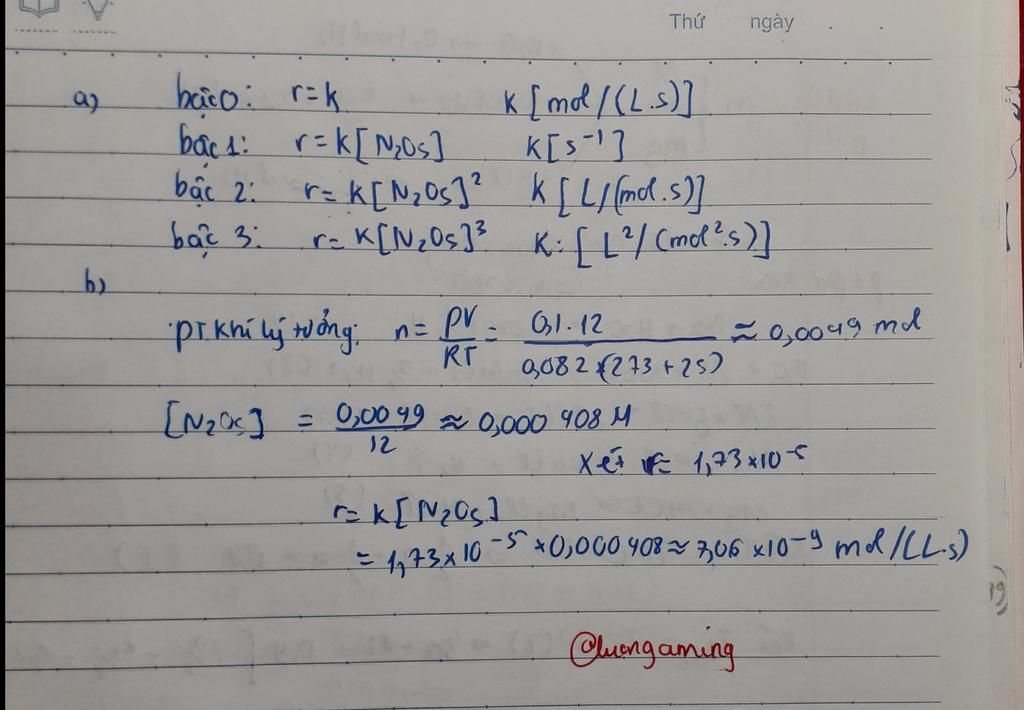 Thứ ngày . .
a) bậc 0: r = k k [mol/(L.s)]
bậc 1: r = k[N2O5] k[s⁻¹]
bậc 2: r = k[N2O5]² k [L/(mol.s)]
bậc 3: r = k[N2O5]³ k: [L²/(mol².s)]
b)
PT khí lý tưởng: n = PV/RT = 0,1.12/0,082×(273+25) ≈ 0,0049 mol
[N2O5] = 0,0049/12 ≈ 0,000 408 M
Xét r = 1,73×10⁻⁵
r = k[N2O5]
= 1,73×10⁻⁵×0,000408 ≈ 7,06×10⁻⁹ mol/(L.s)
@luongaming